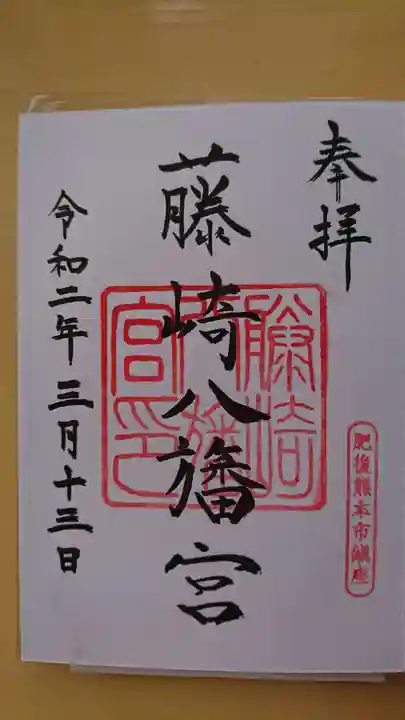 奉拝
肥後熊本市鎮座
藤崎八旛宮
藤崎八旛宮印
令和二年三月十三日